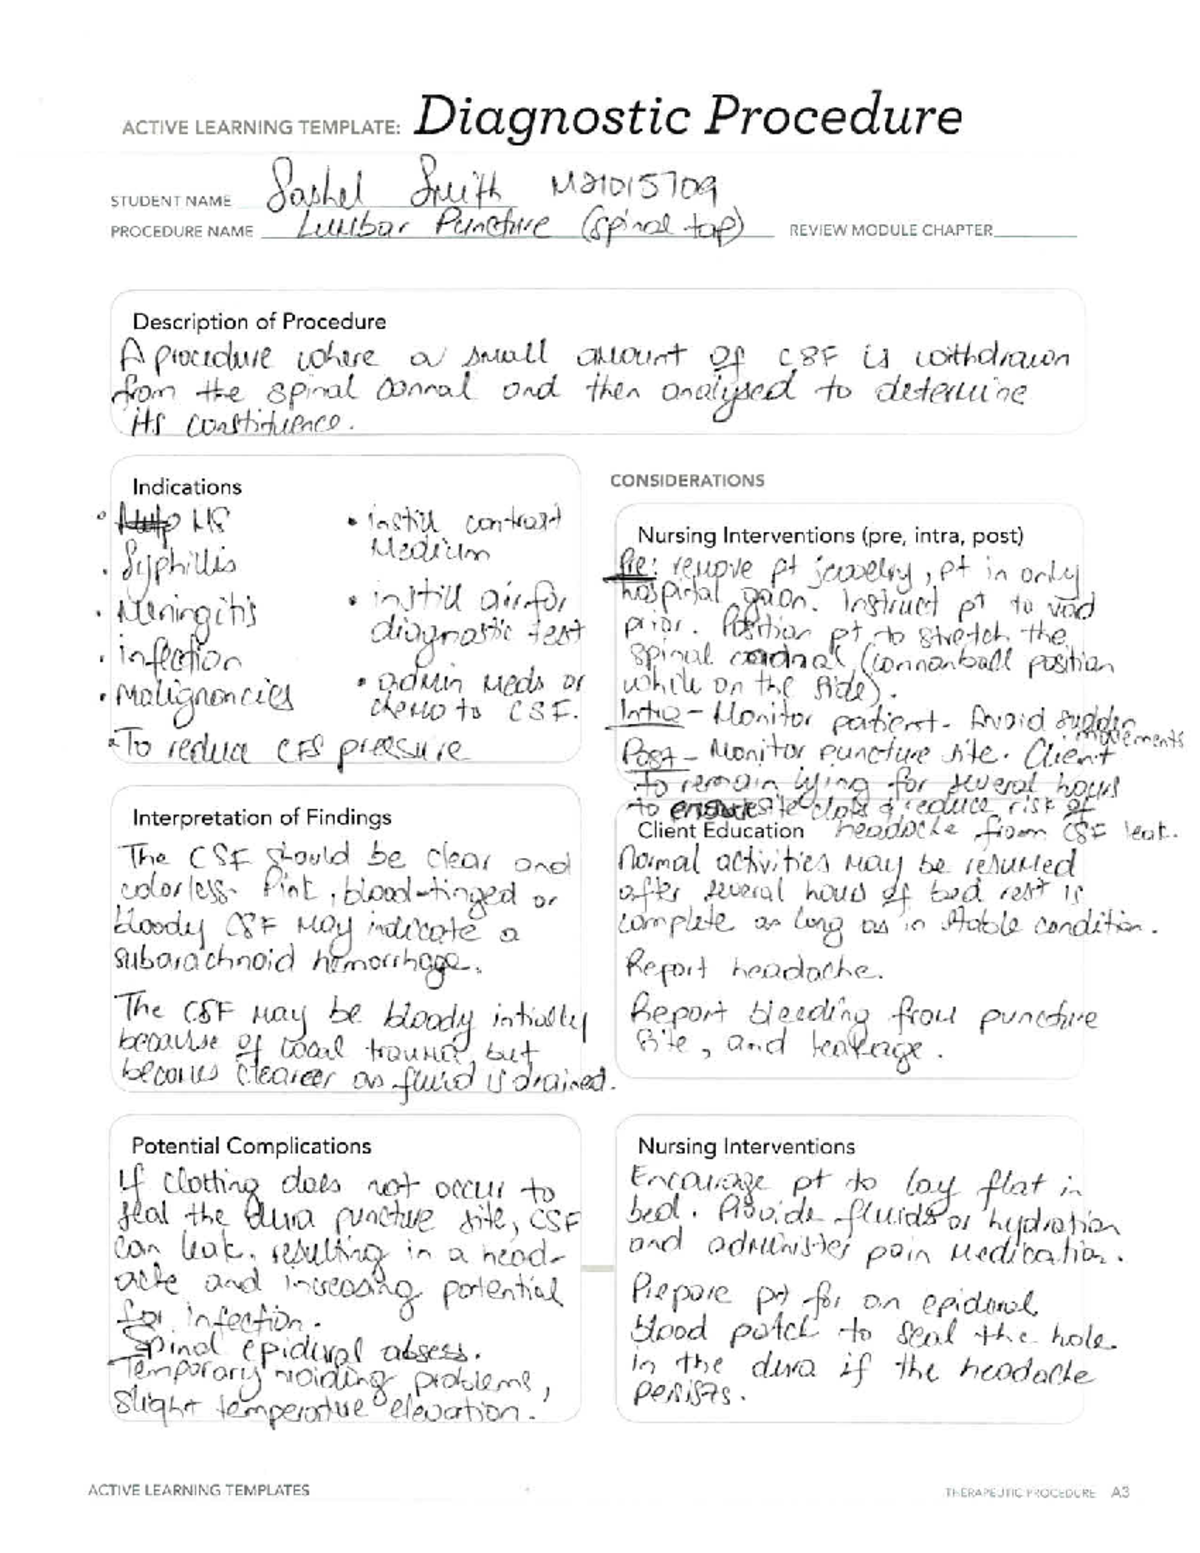 ACTIVE LEARNING TEMPLATE: Diagnostic Procedure
STUDENT NAME Sashel Smith M21015709
PROCEDURE NAME Lumbar Puncture (spinal tap) REVIEW MODULE CHAPTER
Description of Procedure
A procedure where a small amount of CSF is withdrawn
from the spinal cannal and then analysed to determine
its constituence.
Indications
• MS
• Syphillis
• Meningitis
• infection
• Malignancies
• To reduce CFS pressure
• instill contrast
Medium
• instill air for
diagnostic test
• admin meds or
chemo to CSF.
CONSIDERATIONS
Nursing Interventions (pre, intra, post)
Pre: remove pt jewelry, pt in only
hospital gaon. Instruct pt to void
prior. Position pt to stretch the
spinal (connonball position
while on the side).
Intra - Monitor patient. Avoid sudden
movements
Post - Monitor puncture site. Client
to remain lying for several hours
to site clots & reduce risk of
headache from CSF leak.
Interpretation of Findings
The CSF should be clear and
colorless. Pink, blood-tinged or
bloody CSF may indicate a
subarachnoid hemorrhage.
The CSF may be bloody initially
because of local trauma, but
becomes clearer as fluid is drained.
Client Education
Normal activities may be resumed
after several hours of bed rest is
complete as long as in stable condition.
Report headache.
Report bleeding from puncture
site, and leakage.
Potential Complications
If clotting does not occur to
seal the dura puncture site, CSF
can leak, resulting in a head-
ache and increasing potential
for infection.
Spinal epidural absess.
Temporary voiding problems,
slight temperature elevation.
Nursing Interventions
Encourage pt to lay flat in
bed. Provide fluids or hydration
and administer pain medication.
Prepare pt for an epidural
blood patch to seal the hole
in the dura if the headache
persists.
ACTIVE LEARNING TEMPLATES THERAPEUTIC PROCEDURE A3